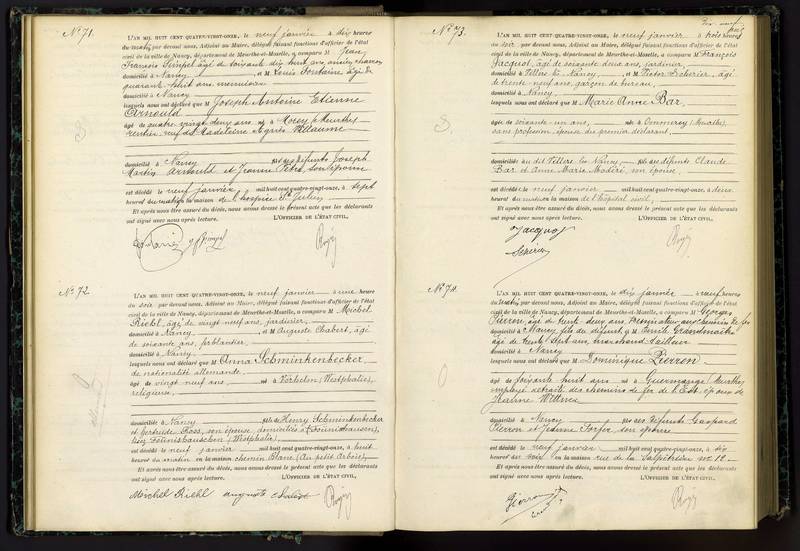 No 71.
L'AN MIL HUIT CENT QUATRE-VINGT-ONZE, le neuf janvier à dix heures
du matin par devant nous, Adjoint au Maire, délégué faisant fonctions d'officier de l'état
civil de la ville de Nancy, département de Meurthe-et-Moselle, a comparu M Jean
François Simpel, âgé de soixante dix huit ans, ancien
domicilié à Nancy, et M Louis Fontaine, âgé de
quarante huit ans, menuisier
domicilié à Nancy
lesquels nous ont déclaré que M Joseph Antoine Etienne
Arnould
âgé de quatre vingt deux ans né à (Meurthe)
rentier, veuf de Madeleine Agnès Villaume
domicilié à Nancy fils des défunts Joseph
Martin Arnould et Jeanne Pétré, son épouse
est décédé le neuf janvier mil huit cent quatre-vingt-onze, à sept
heures du matin en la maison de l'hospice St Julien
Et après nous être assuré du décès, nous avons dressé le présent acte que les déclarants
ont signé avec nous après lecture. L'OFFICIER DE L'ÉTAT CIVIL,
No 72
L'AN MIL HUIT CENT QUATRE-VINGT-ONZE, le neuf janvier à une heure
du soir par devant nous, Adjoint au Maire, délégué faisant fonctions d'officier de l'état
civil de la ville de Nancy, département de Meurthe-et-Moselle, a comparu M Michel
Riehl, âgé de vingt neuf ans, jardinier,
domicilié à Nancy et M Auguste Chabert, âgé
de soixante ans, ferblantier
domicilié à Nancy
lesquels nous ont déclaré que M Anna Schminkenbecker
de nationalité allemande
âgée de vingt neuf ans née à Vorhelm (Westphalie),
religieuse,
domiciliée à Nancy fille de Henry Schminkenbecker
et Gertrude Roos, son épouse, domiciliés à
(Westphalie)
est décédée le neuf janvier mil huit cent quatre-vingt-onze, à huit
heures du matin en la maison chemin Blanc (Au petit Arbois),
Et après nous être assuré du décès, nous avons dressé le présent acte que les déclarants
ont signé avec nous après lecture. L'OFFICIER DE L'ÉTAT CIVIL,
Michel Riehl auguste chabert
No 73.
L'AN MIL HUIT CENT QUATRE-VINGT-ONZE, le neuf janvier à trois heures
du soir par devant nous, Adjoint au Maire, délégué faisant fonctions d'officier de l'état
civil de la ville de Nancy, département de Meurthe-et-Moselle, a comparu M François
Jacquot, âgé de soixante deux ans, jardinier,
domicilié à Villers lès Nancy, et M Victor Scherier, âgé
de trente neuf ans, garçon de bureau,
domicilié à Nancy
lesquels nous ont déclaré que M Marie Anne Bar,
âgée de soixante un ans, née à Pommeray (Moselle)
sans profession, épouse du premier déclarant,
domiciliée au dit Villers lès Nancy fille des défunts Claude
Bar et Anne Marie Madéré, son épouse,
est décédée le neuf janvier mil huit cent quatre-vingt-onze, à deux
heures du matin en la maison de l'hôpital civil,
Et après nous être assuré du décès, nous avons dressé le présent acte que les déclarants
ont signé avec nous après lecture. L'OFFICIER DE L'ÉTAT CIVIL,
Jacquot
Scherier
No 74.
L'AN MIL HUIT CENT QUATRE-VINGT-ONZE, le dix janvier à neuf heures
du matin par devant nous, Adjoint au Maire, délégué faisant fonctions d'officier de l'état
civil de la ville de Nancy, département de Meurthe-et-Moselle, a comparu M Georges
Pierron, âgé de trente deux ans, chemin de fer
domicilié à Nancy fils du défunt, et M Emile Grandmaitre
âgé de trente sept ans, marchand tailleur
domicilié à Nancy
lesquels nous ont déclaré que M Dominique Pierron
âgé de soixante huit ans né à Guermange (Meurthe)
employé retraité des chemins de fer de l'Est, époux de
Jeanne
domicilié à Nancy fils des défunts Gaspard
Pierron et Jeanne son épouse
est décédé le neuf janvier mil huit cent quatre-vingt-onze, à dix
heures du soir en la maison rue de la Salpêtrière no 12
Et après nous être assuré du décès, nous avons dressé le présent acte que les déclarants
ont signé avec nous après lecture. L'OFFICIER DE L'ÉTAT CIVIL,
Pierron